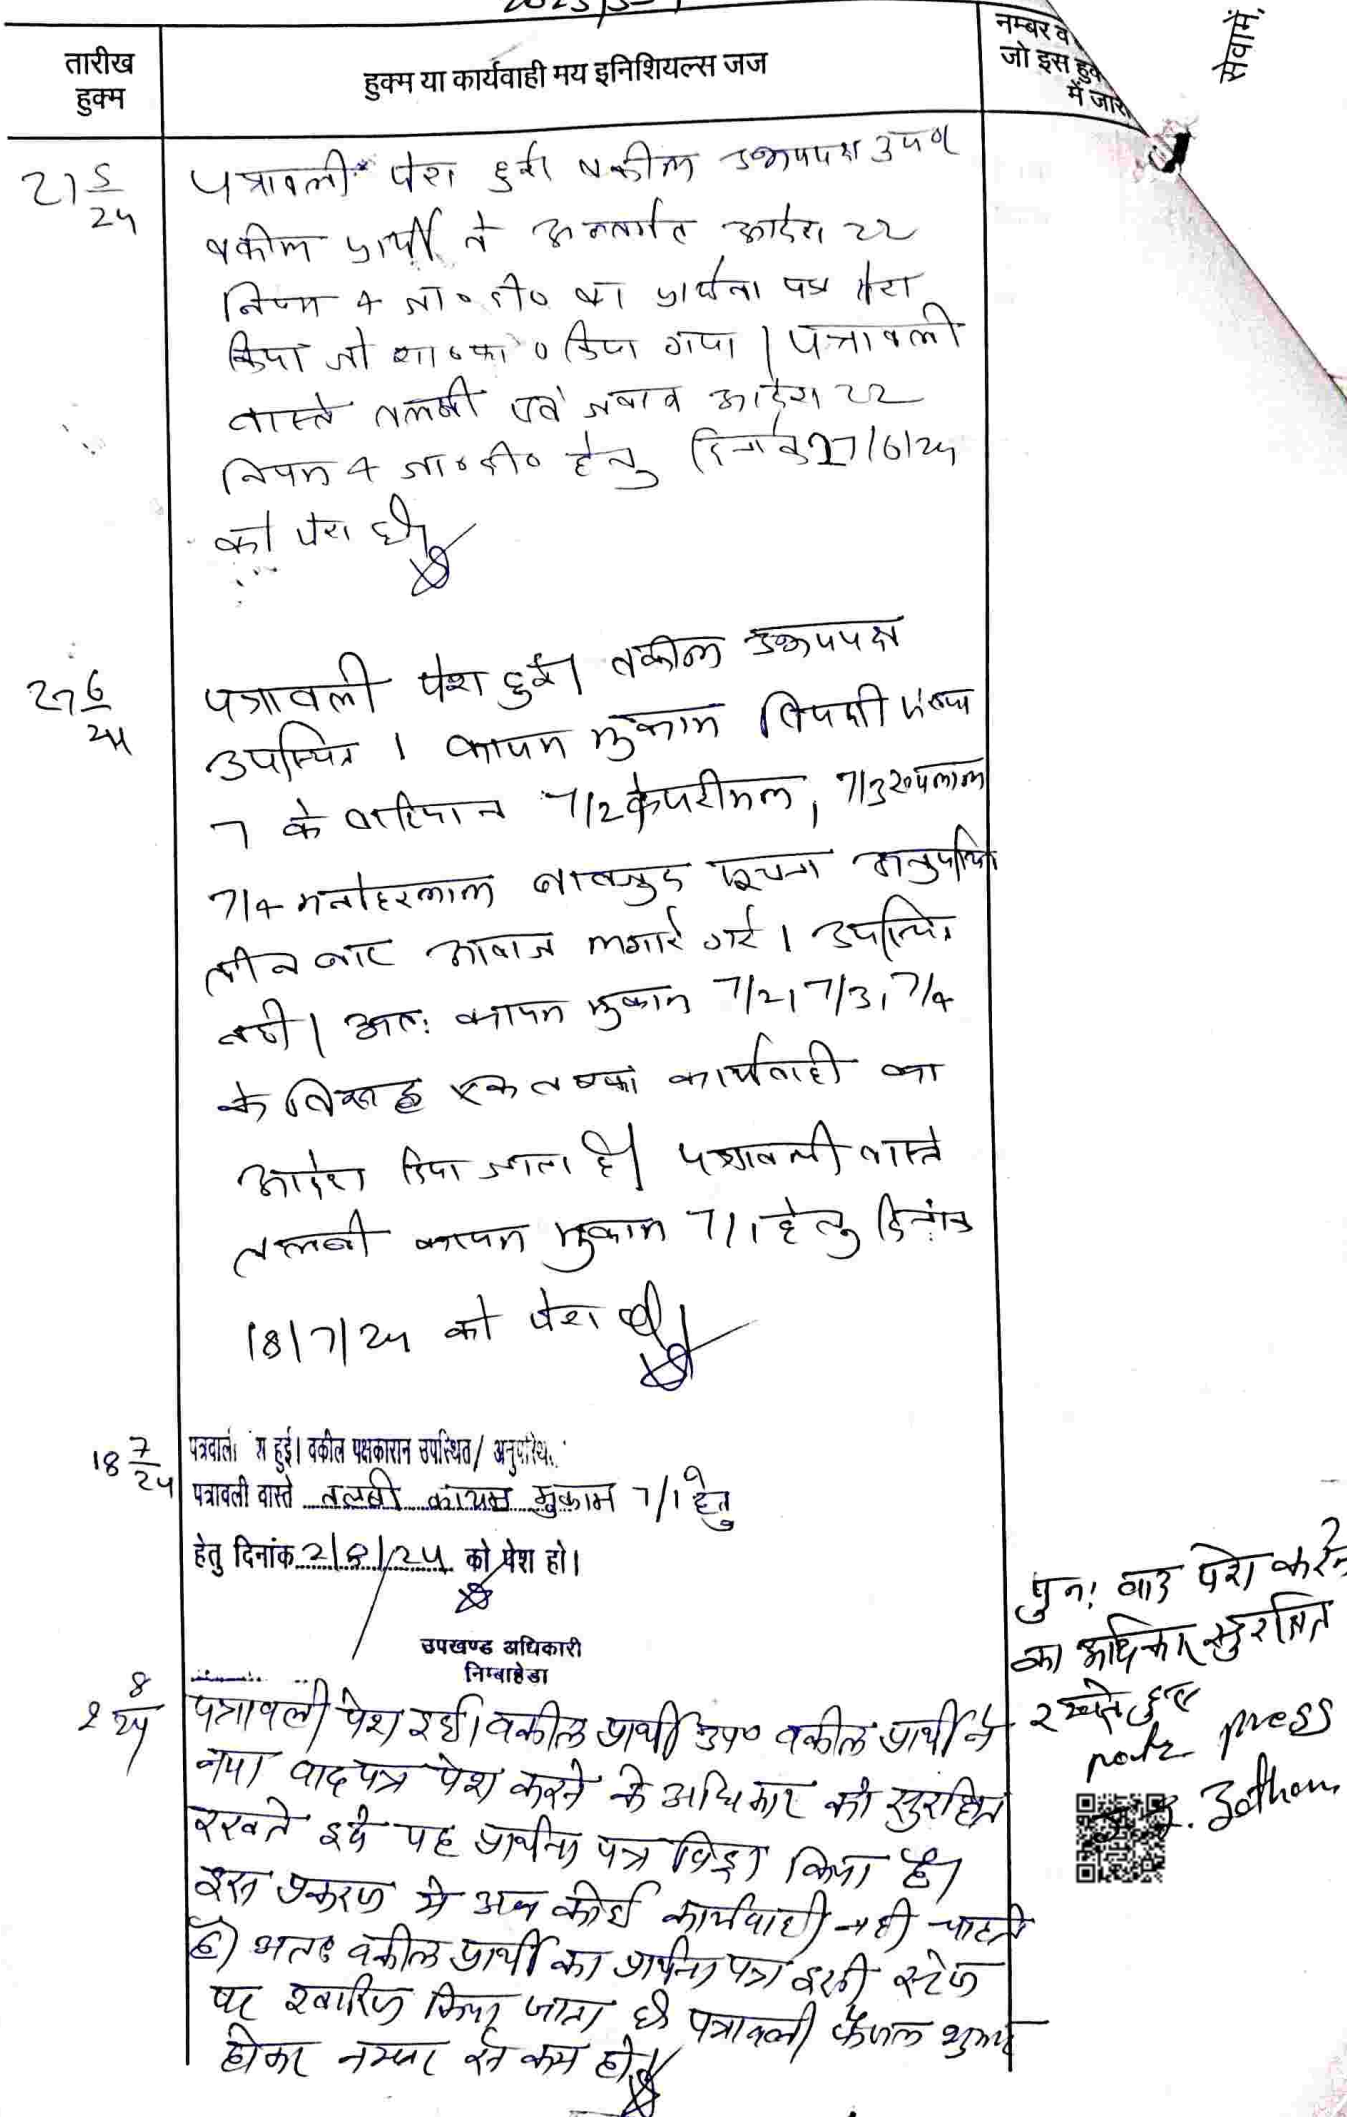 तारीख
हुक्म
हुक्म या कार्यवाही मय इनिशियल्स जज
नम्बर व
जो इस हुक
में जार
21 5/24
पत्रावली पेश हुई वकील उभयपक्ष उप०
वकील प्रार्थी ने अन्तर्गत आदेश 22
नियम 4 जा०दी० का प्रार्थना पत्र पेश
किया जो शा०फा० किया गया। पत्रावली
वास्ते तलबी एवं जवाब आदेश 22
नियम 4 जा०दी० हेतु दिनांक 27/6/24
को पेश हो।
27 6/24
पत्रावली पेश हुई। वकील उभयपक्ष
उपस्थित। कायम मुकाम विपक्षी संख्या
7 के वारिसान 7/2 केसरीमल, 7/3 रूपलाल
7/4 मनोहरलाल बावजूद सूचना अनुपस्थित
तीन बार आवाज लगाई गई। उपस्थित
नही। अतः कायम मुकाम 7/2, 7/3, 7/4
के विरूद्ध एक तरफा कार्यवाही का
आदेश दिया जाता है। पत्रावली वास्ते
तलबी कायम मुकाम 7/1 हेतु दिनांक
18/7/24 को पेश हो।
18 7/24
हुई। वकील पक्षकारान उपस्थित/
पत्रावली वास्ते तलबी कायम मुकाम 7/1 हेतु
हेतु दिनांक 2/8/24 को पेश हो।
उपखण्ड अधिकारी
निम्बाहेडा
पुनः वाद पेश करने
का अधिकार सुरक्षित
रखते हुए
press
2 8/24
पत्रावली पेश हुई। वकील प्रार्थी उप० वकील प्रार्थी ने
नया वादपत्र पेश करने के अधिकार को सुरक्षित
रखते हुये यह प्रार्थना पत्र विड्रा किया है।
इस प्रकरण मे अब कोई कार्यवाही नही चाहते
है। अतः वकील प्रार्थी का प्रार्थना पत्र इसी स्टेज
पर खारिज किया जाता है पत्रावली फैसल शुमार
होकर नम्बर से कम हो।